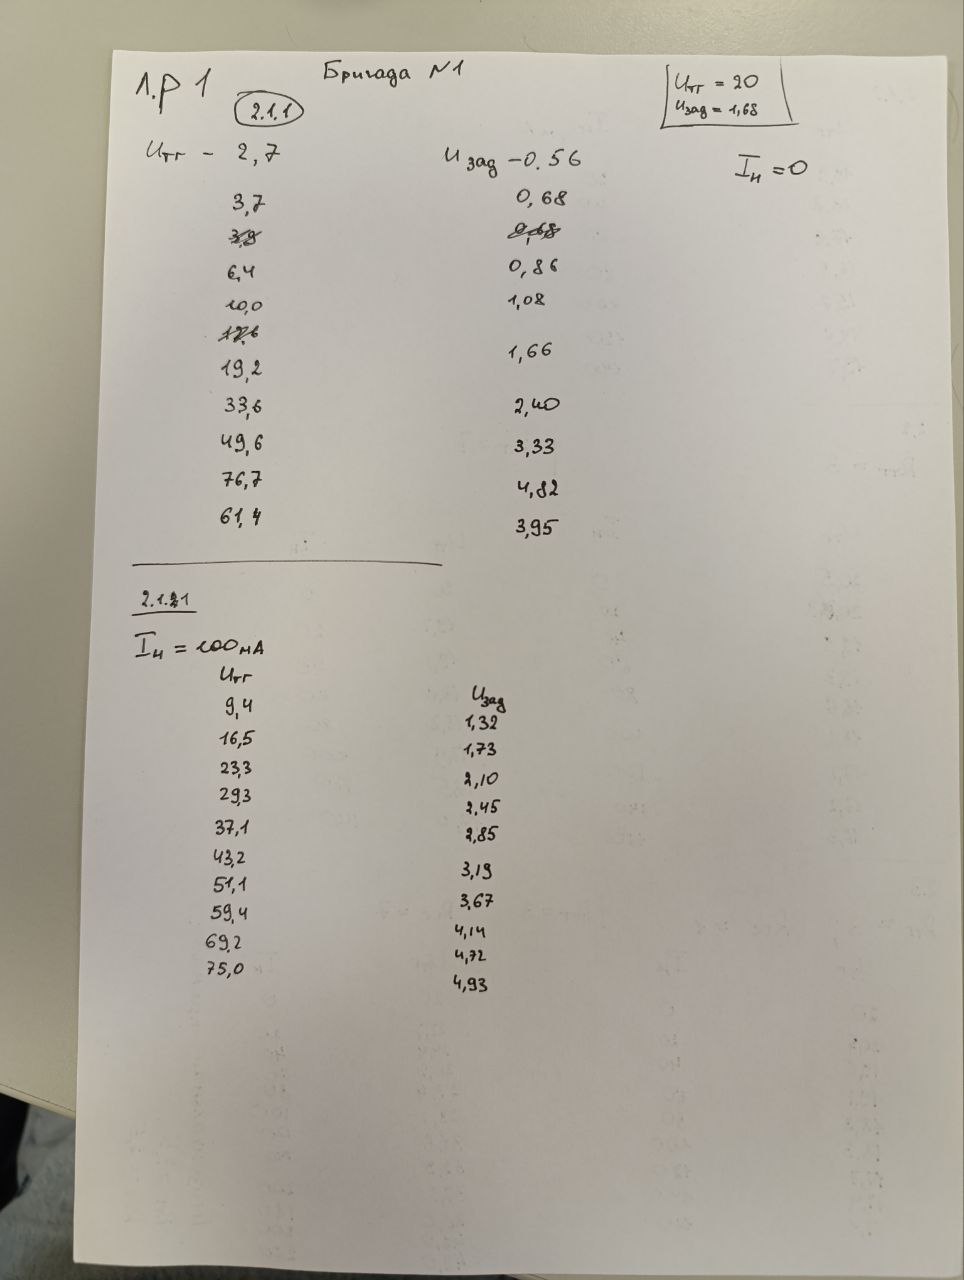 Л.Р 1 Бригада N1
Uтг = 20
Uзад = 1,68
2.1.1
Uтг - 2,7 Uзад - 0.56 Iн = 0
3,7 0,68
3,9 0,68
6,4 0,86
10,0 1,08
19,2 1,66
33,6 2,40
49,6 3,33
76,7 4,82
61,4 3,95
2.1.21
Iн = 100мА
Uтг Uзад
9,4 1,32
16,5 1,73
23,3 2,10
29,3 2,45
37,1 2,85
43,2 3,19
51,1 3,67
59,4 4,14
69,2 4,72
75,0 4,93